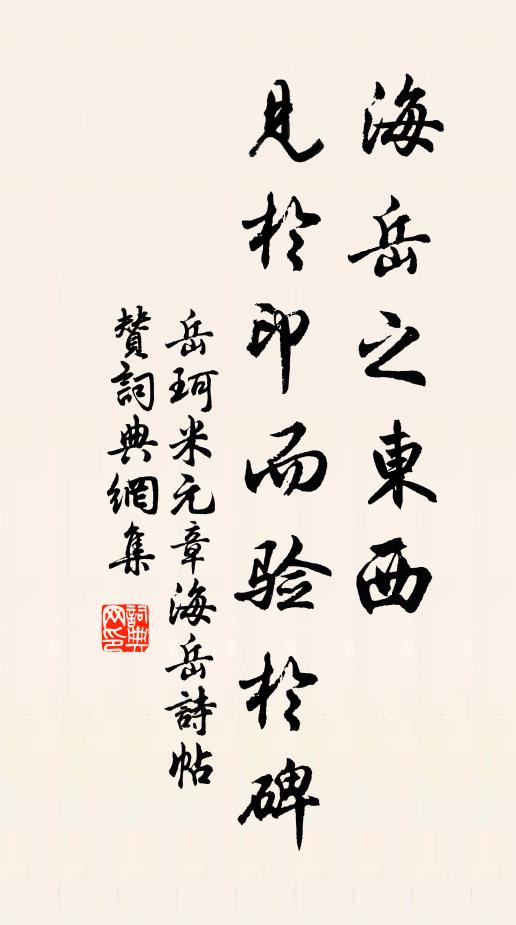 海岳之東西
見於印而验於碑
岳珂米元章海岳詩帖
贊詞典網集
詞典
网印